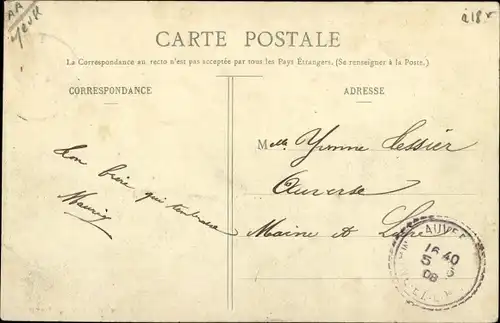 AA
218
CARTE POSTALE
La Correspondance au recto n'est pas acceptée par tous les Pays Étrangers. (Se renseigner à la Poste.)
CORRESPONDANCE
ADRESSE
Melle Yvonne Tessier
Auverse
Maine et Loire
Ton frère qui t'embrasse
Maurice
AUVE
16 40
5 5
08